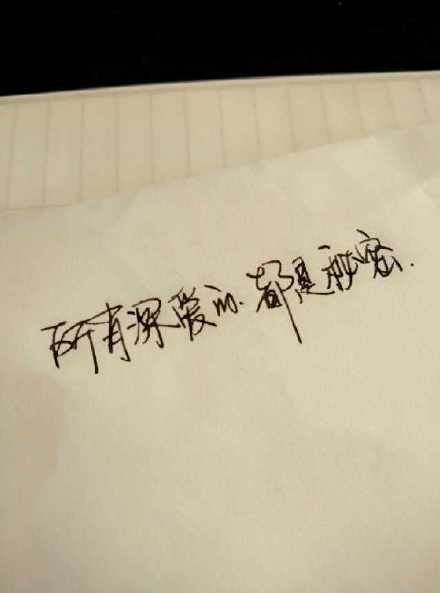 所有深爱的.都是秘密.